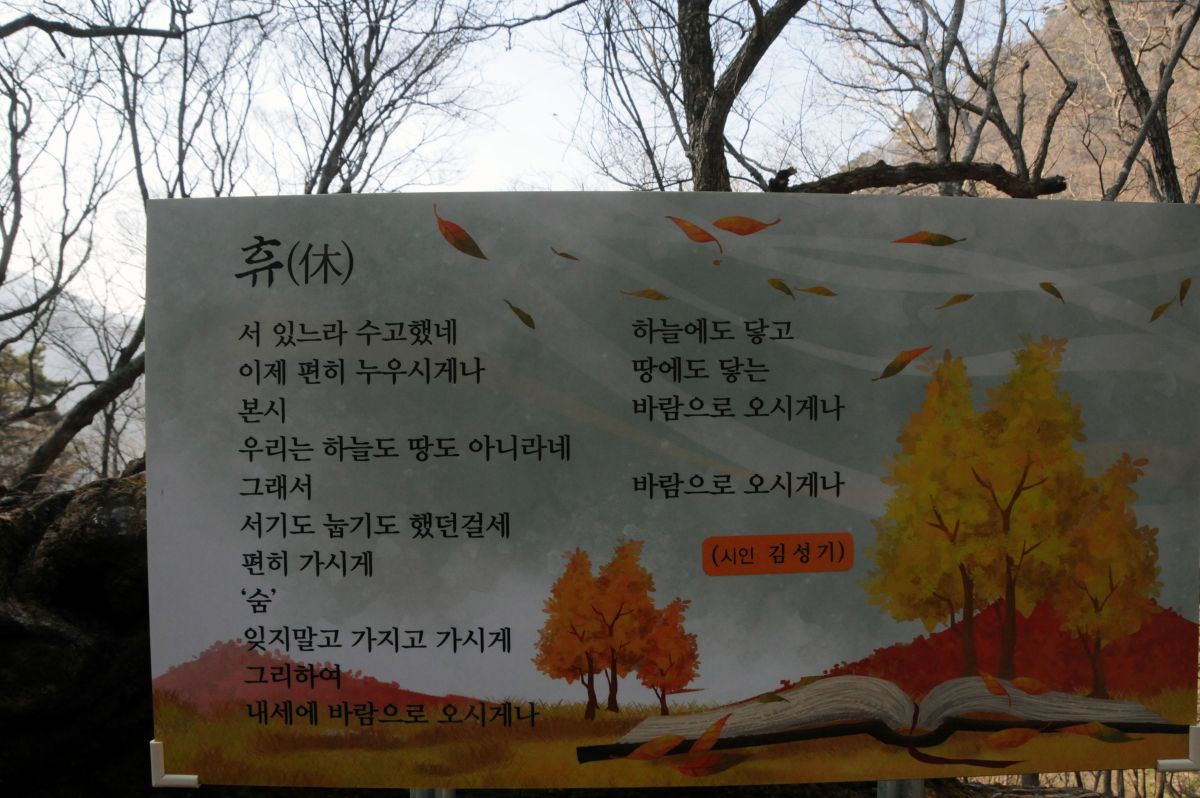 휴(休)
서 있느라 수고했네
이제 편히 누우시게나
본시
우리는 하늘도 땅도 아니라네
그래서
서기도 눕기도 했던걸세
편히 가시게
‘숨’
잊지말고 가지고 가시게
그리하여
내세에 바람으로 오시게나
하늘에도 닿고
땅에도 닿는
바람으로 오시게나
바람으로 오시게나
(시인 김성기)